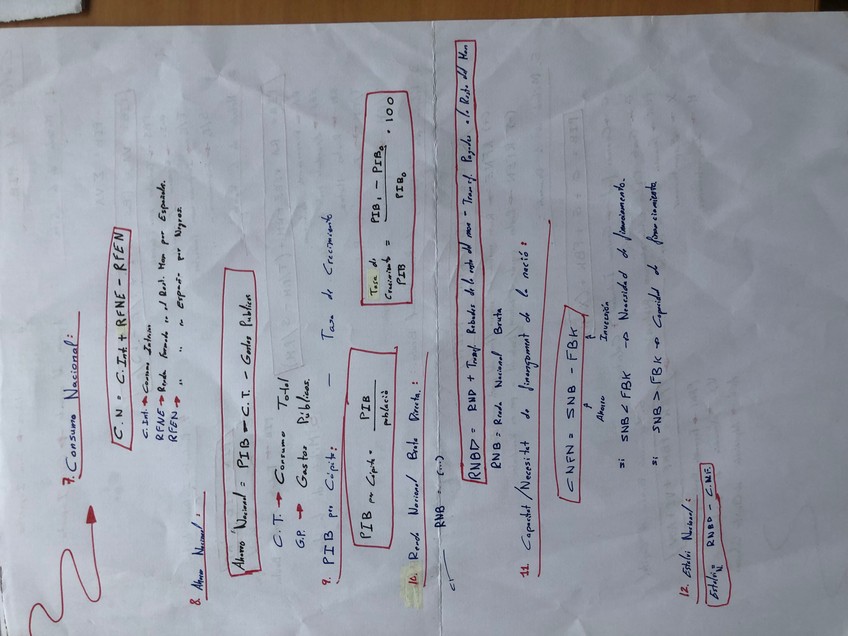 7. Consumo Nacional:
C.N = C.Int + RFNE - RFEN
C.Int. → Consumo Interior
RFNE → Renda formada en el Rest. Mon por Españoles.
RFEN → " " en España por
8. Ahorro Nacional:
Ahorro Nacional = PIB - C.T. - Gastos Publicos
C.T. → Consumo Total
G.P. → Gastos Públicos.
9. PIB per Cápita: — Tasa de Crecimiento
PIB per Cápita = PIB / població
Tasa de Crecimiento PIB = PIB₁ - PIB₀ / PIB₀ · 100
10. Renda Nacional Bruta Directa:
RNB = (...)
RNBD = RND + Transf. Rebudes de la resta del mon - Transf. Pagades a la Resta del Mon
RNB = Renda Nacional Bruta
11. Capacitat/Necesitat de finançament de la nació:
CNFN = SNB - FBK
Ahorro Inversión
si SNB < FBK → Necesidad de financiamento.
si SNB > FBK → Capacidad de financiamiento
12. Estalvi Nacional:
Estalvi N = RNBD - C.NF.